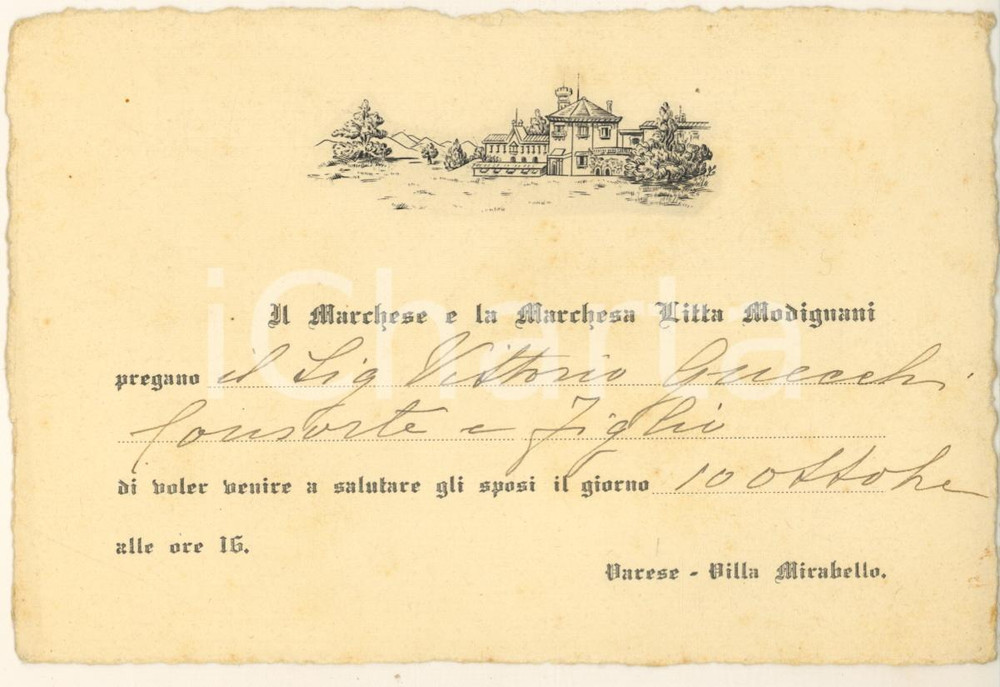 Il Marchese e la Marchesa Litta Modignani
pregano il Sig Vittorio Gnecchi
Consorte e Figlio
di voler venire a salutare gli sposi il giorno 10 ottobre
alle ore 16.
Varese - Villa Mirabello.
iCharta